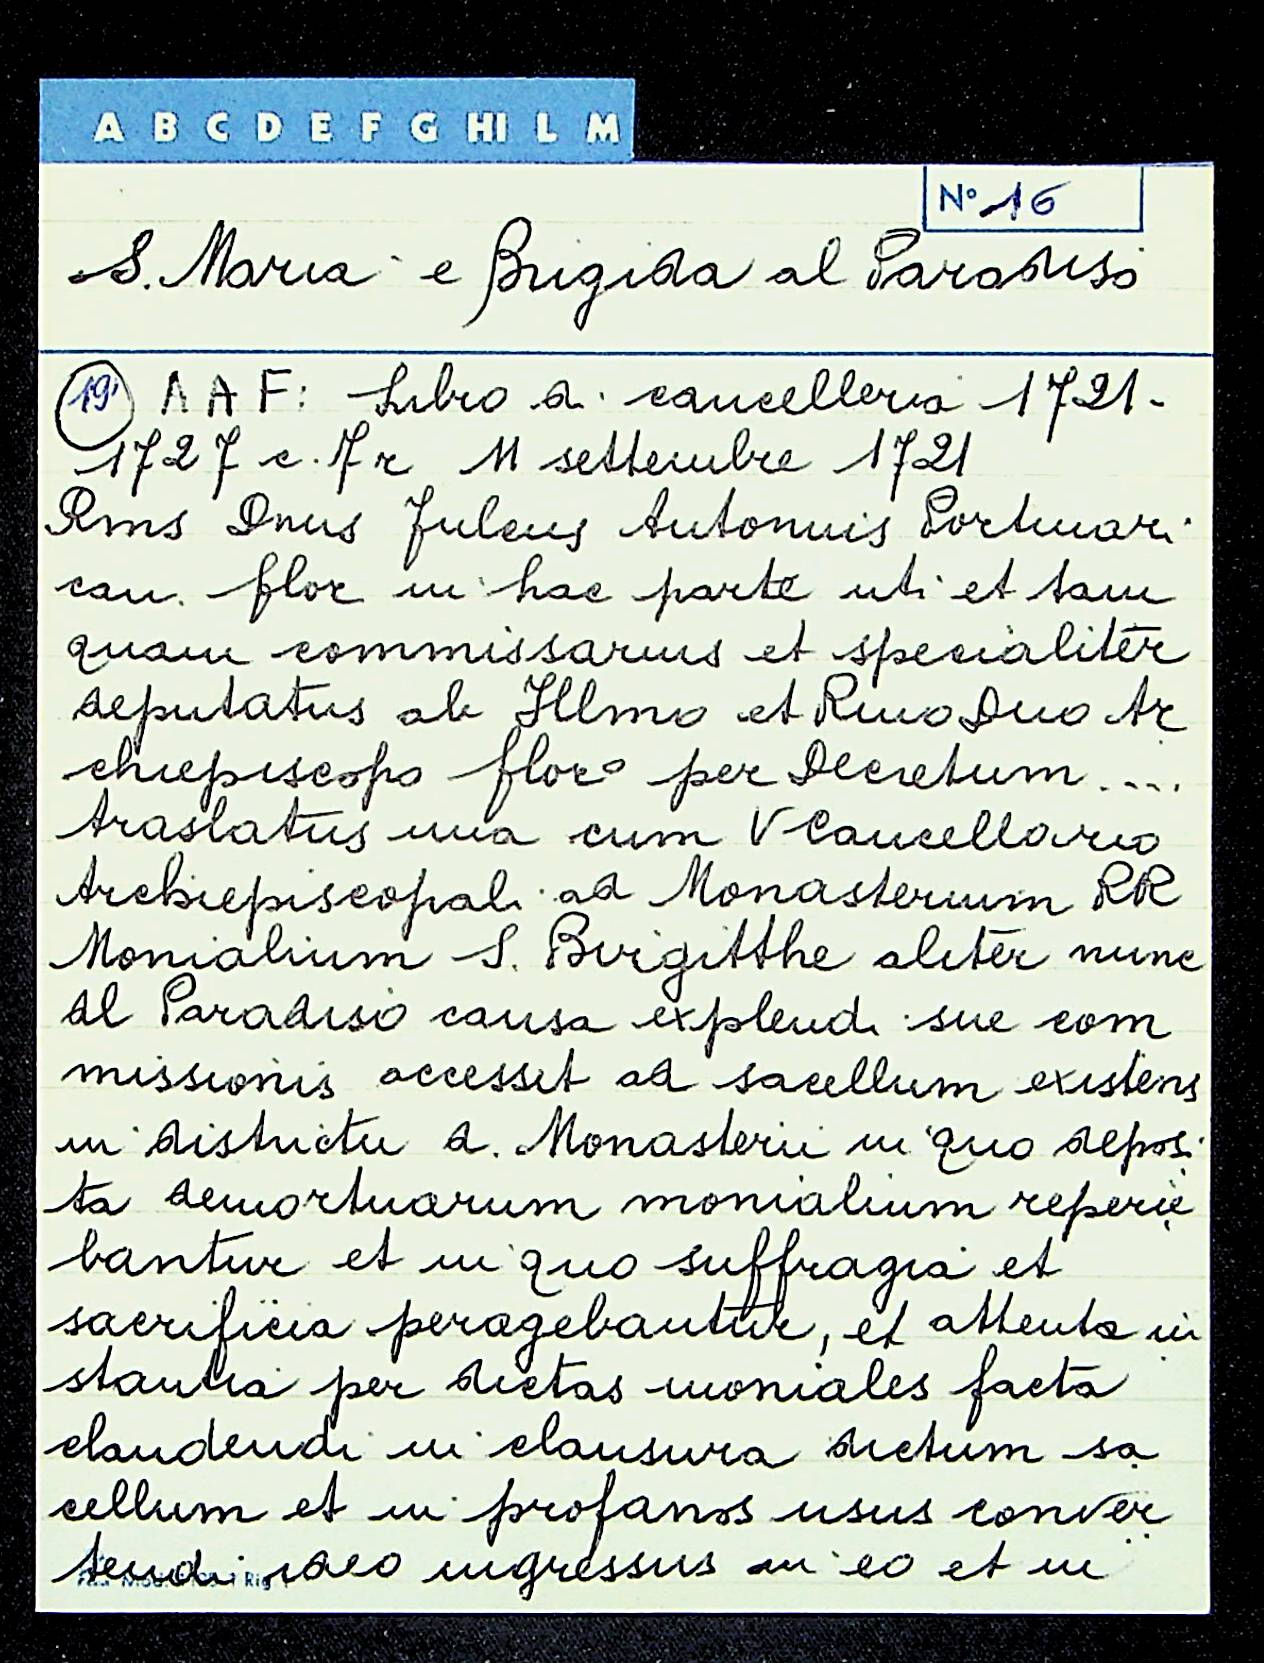 A B C D E F G HI L M
Nº 16
S. Maria e Brigida al Paradiso
19 AAF: Libro di cancelleria 1721-
1727 c. 7r 11 settembre 1721
Rms Dnus Juleus Antonius Portinari
can. flor in hac parte uti et tam
quam commissarius et specialiter
deputatus ab Illmo et Rmo Dno Ar
chiepiscopo floro per Decretum ....
traslatus una cum V Cancellario
Archiepiscopali ad Monasterium RR
Monialium S. Birgitthe aliter nunc
al Paradiso causa explendi sue com
missionis accessit ad sacellum existens
in districtu d. Monasterii in quo deposi
ta demortuarum monialium reperie
bantur et in quo suffragia et
sacrificia peragebantur, et attenta in
stantia per dictas moniales facta
claudendi in clausura dictum sa
cellum et in profanos usus conver
tendi ideo ingressus in eo et in